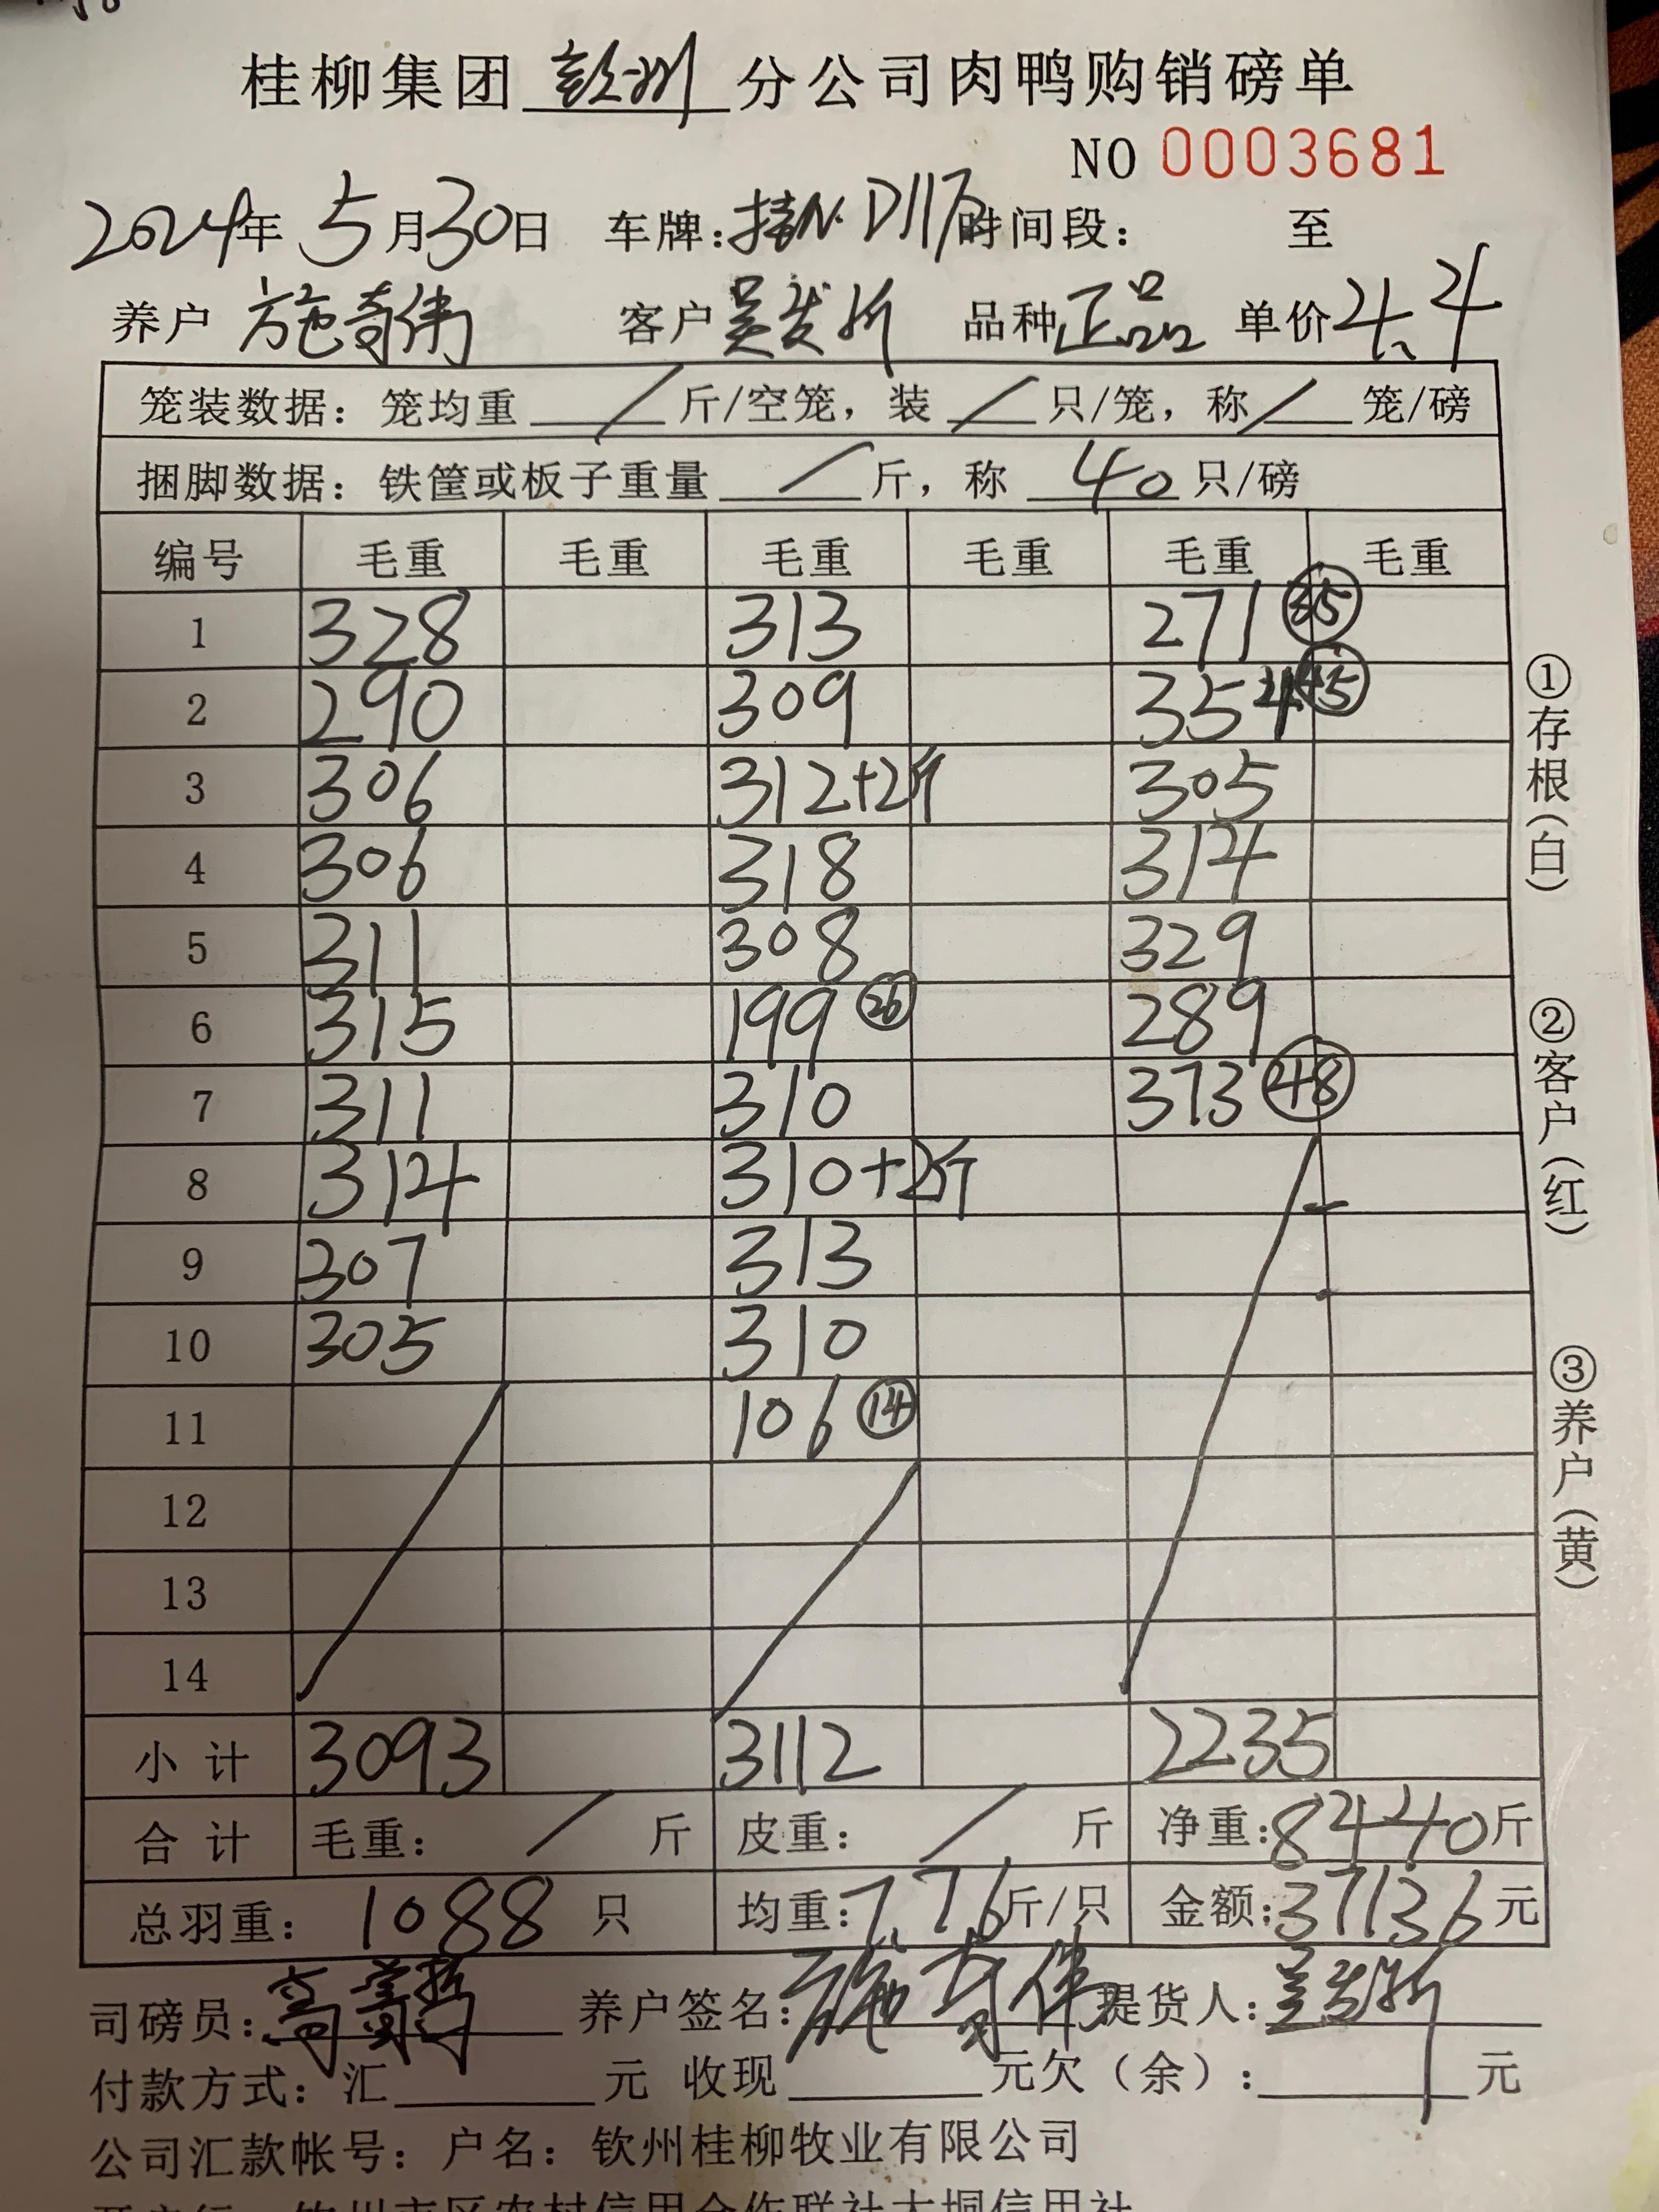 桂柳集团彭州分公司肉鸭购销磅单
NO 0003681
2024年 5月30日 车牌: 时间段: 至
养户 施奇伟 客户 吴发浙 品种 正品 单价 4.4
笼装数据: 笼均重 / 斤/空笼, 装 / 只/笼, 称 / 笼/磅
捆脚数据: 铁筐或板子重量 / 斤, 称 40 只/磅
编号 毛重 毛重 毛重 毛重 毛重 毛重
1 328 313 271 35
2 290 309 354 45
3 306 312+2斤 305
4 306 318 314
5 311 308 329
6 315 199 26 289
7 311 310 373 48
8 314 310+2斤
9 307 313
10 305 310
11 106 14
12
13
14
小计 3093 3112 2235
合计 毛重: / 斤 皮重: / 斤 净重: 8440斤
总羽重: 1088 只 均重: 7.76斤/只 金额: 37136元
司磅员: 养户签名: 施奇伟 提货人: 吴发浙
付款方式: 汇 元 收现 元欠(余): 元
公司汇款帐号: 户名: 钦州桂柳牧业有限公司
①存根(白)
②客户(红)
③养户(黄)